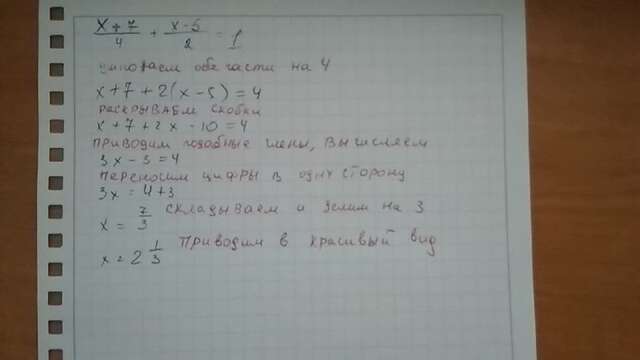 x+7/4 + x-5/2 = 1
умножаем обе части на 4
x+7+2(x-5)=4
раскрываем скобки
x+7+2x-10=4
приводим подобные члены, вычисляем
3x-3=4
переносим цифры в одну сторону
3x=4+3
x= 7/3 складываем и делим на 3
x=2 1/3 приводим в красивый вид